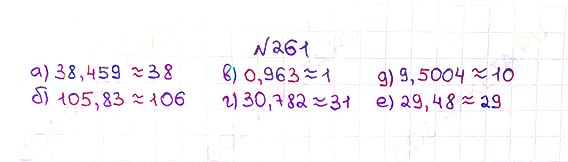 №261
а) 38,459 ≈ 38 в) 0,963 ≈ 1 д) 9,5004 ≈ 10
б) 105,83 ≈ 106 г) 30,782 ≈ 31 е) 29,48 ≈ 29